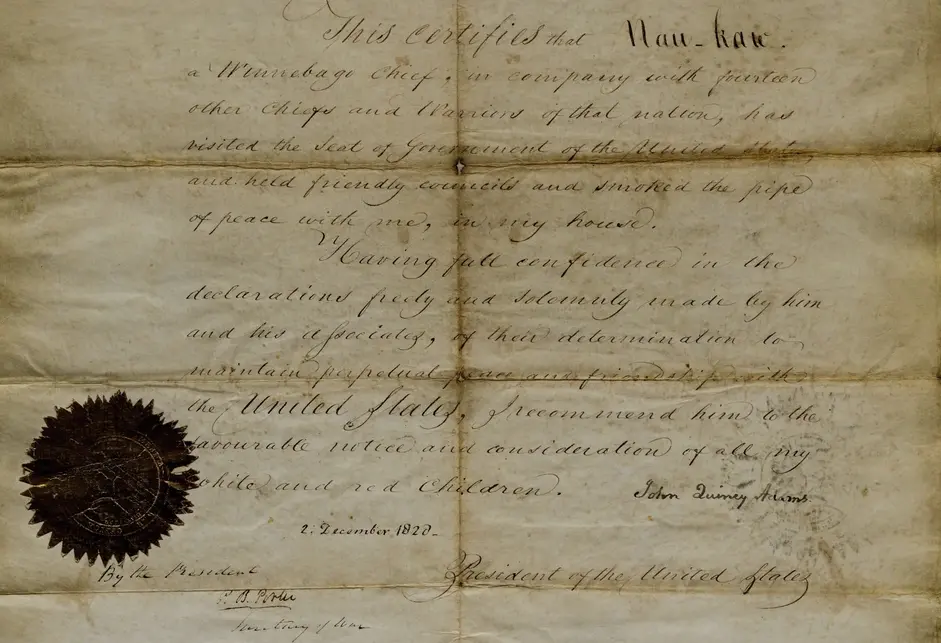 This certifies that Nau-kaw.
a Winnebago Chief, in company with fourteen
other Chiefs and Warriors of that nation, has
visited the Seat of Government of the United States,
and held friendly councils and smoked the pipe
of peace with me, in my house.
Having full confidence in the
declarations freely and solemnly made by him
and his associates, of their determination to
maintain perpetual peace and friendship with
the United States, I recommend him to the
favourable notice and consideration of all my
white and red Children.
John Quincy Adams
2: December 1828-
By the President
President of the United States
P. B. Porter
Secretary of War